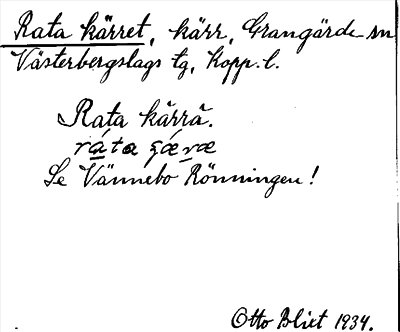 Rata kärret, kärr, Grangärde sn
Västerbergslags tg, Kopp. l.
Rata kärrä.
Se Vännebo Rönningen!
Otto Blixt 1934.